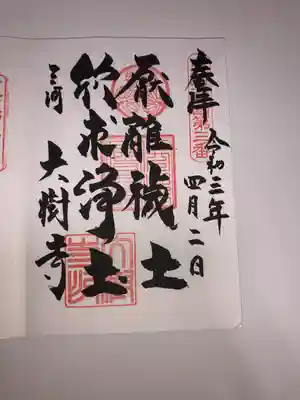 奉拝
令和三年
四月二日
厭離穢土
欣求浄土
三河
大樹寺